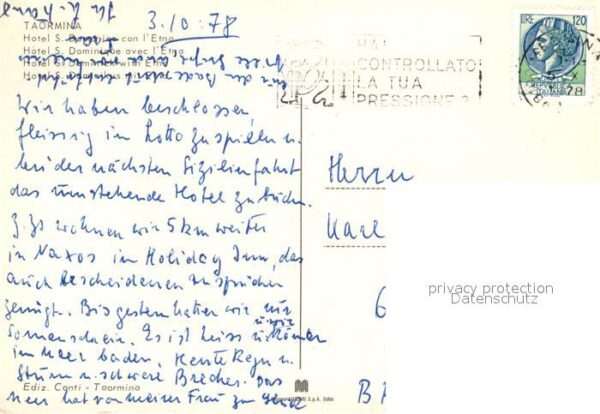 3.10.78
TAORMINA
Hotel S. Domenico con l'Etna
Hotel S. Dominique avec l'Etna
Hotel S. Dominic with Etna
Hotel S.
HAI
CONTROLLATO
LA TUA
PRESSIONE?
LIRE 120
ITALIANA
Wir haben beschlossen,
fleissig im Lotto zu spielen u.
bei der nächsten Sizilienfahrt
das umstehende Hotel zu buchen.
Z. Zt wohnen wir 5 km weiter
in Naxos im Holiday Inn, das
auch bescheidenen Ansprüchen
genügt. Bis gestern hatten wir nur
Sonnenschein. Es ist heiss u. wir können
im Meer baden. Heute Regen u.
Sturm u. schwere Brecher. Das
Meer hat von meiner Frau zu
Herrn
Karl
G
B
privacy protection
Datenschutz
Ediz. Conti - Taormina